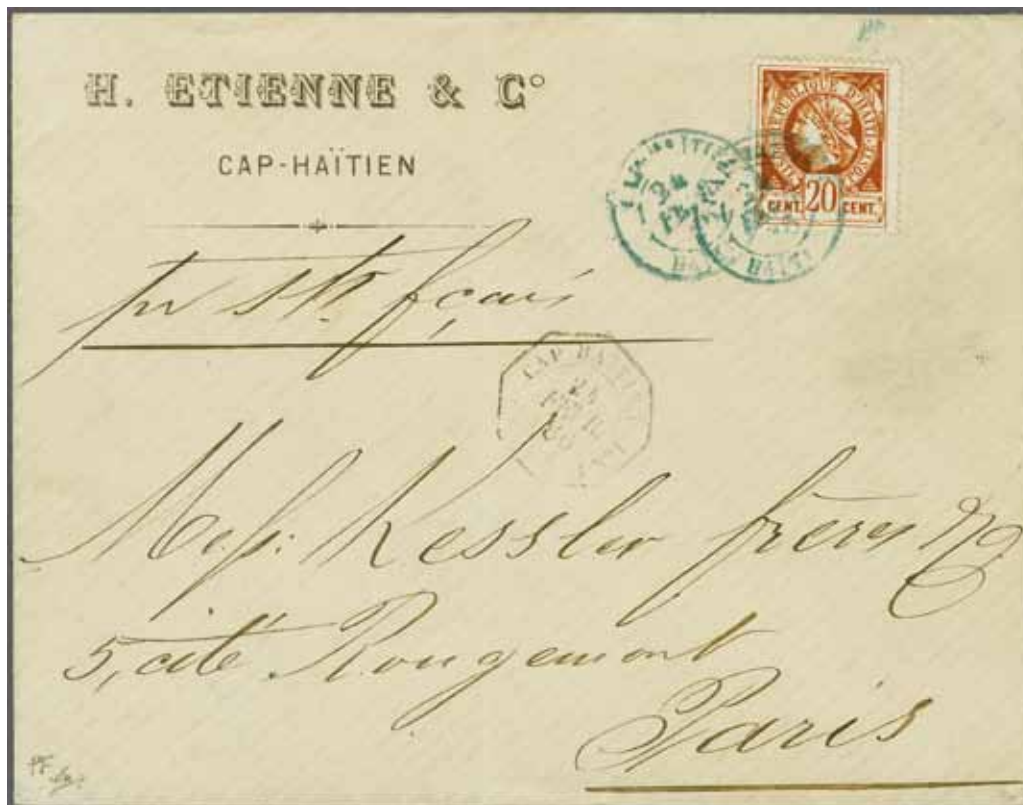 H. ETIENNE & Cº
CAP-HAÏTIEN
REPUBLIQUE D'HAITI
CENT. 20 CENT.
HAITI
pr str. fçais
CAP HAITIEN
24
Kessler frères &
5, cité Rougemont
Paris